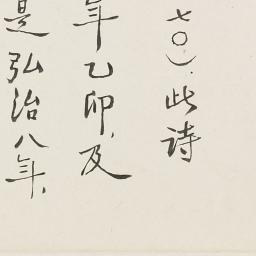 七〇）．此诗
年乙卯，及
是弘治八年，